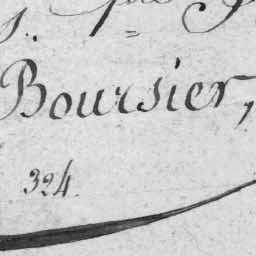 Boursier,
324.